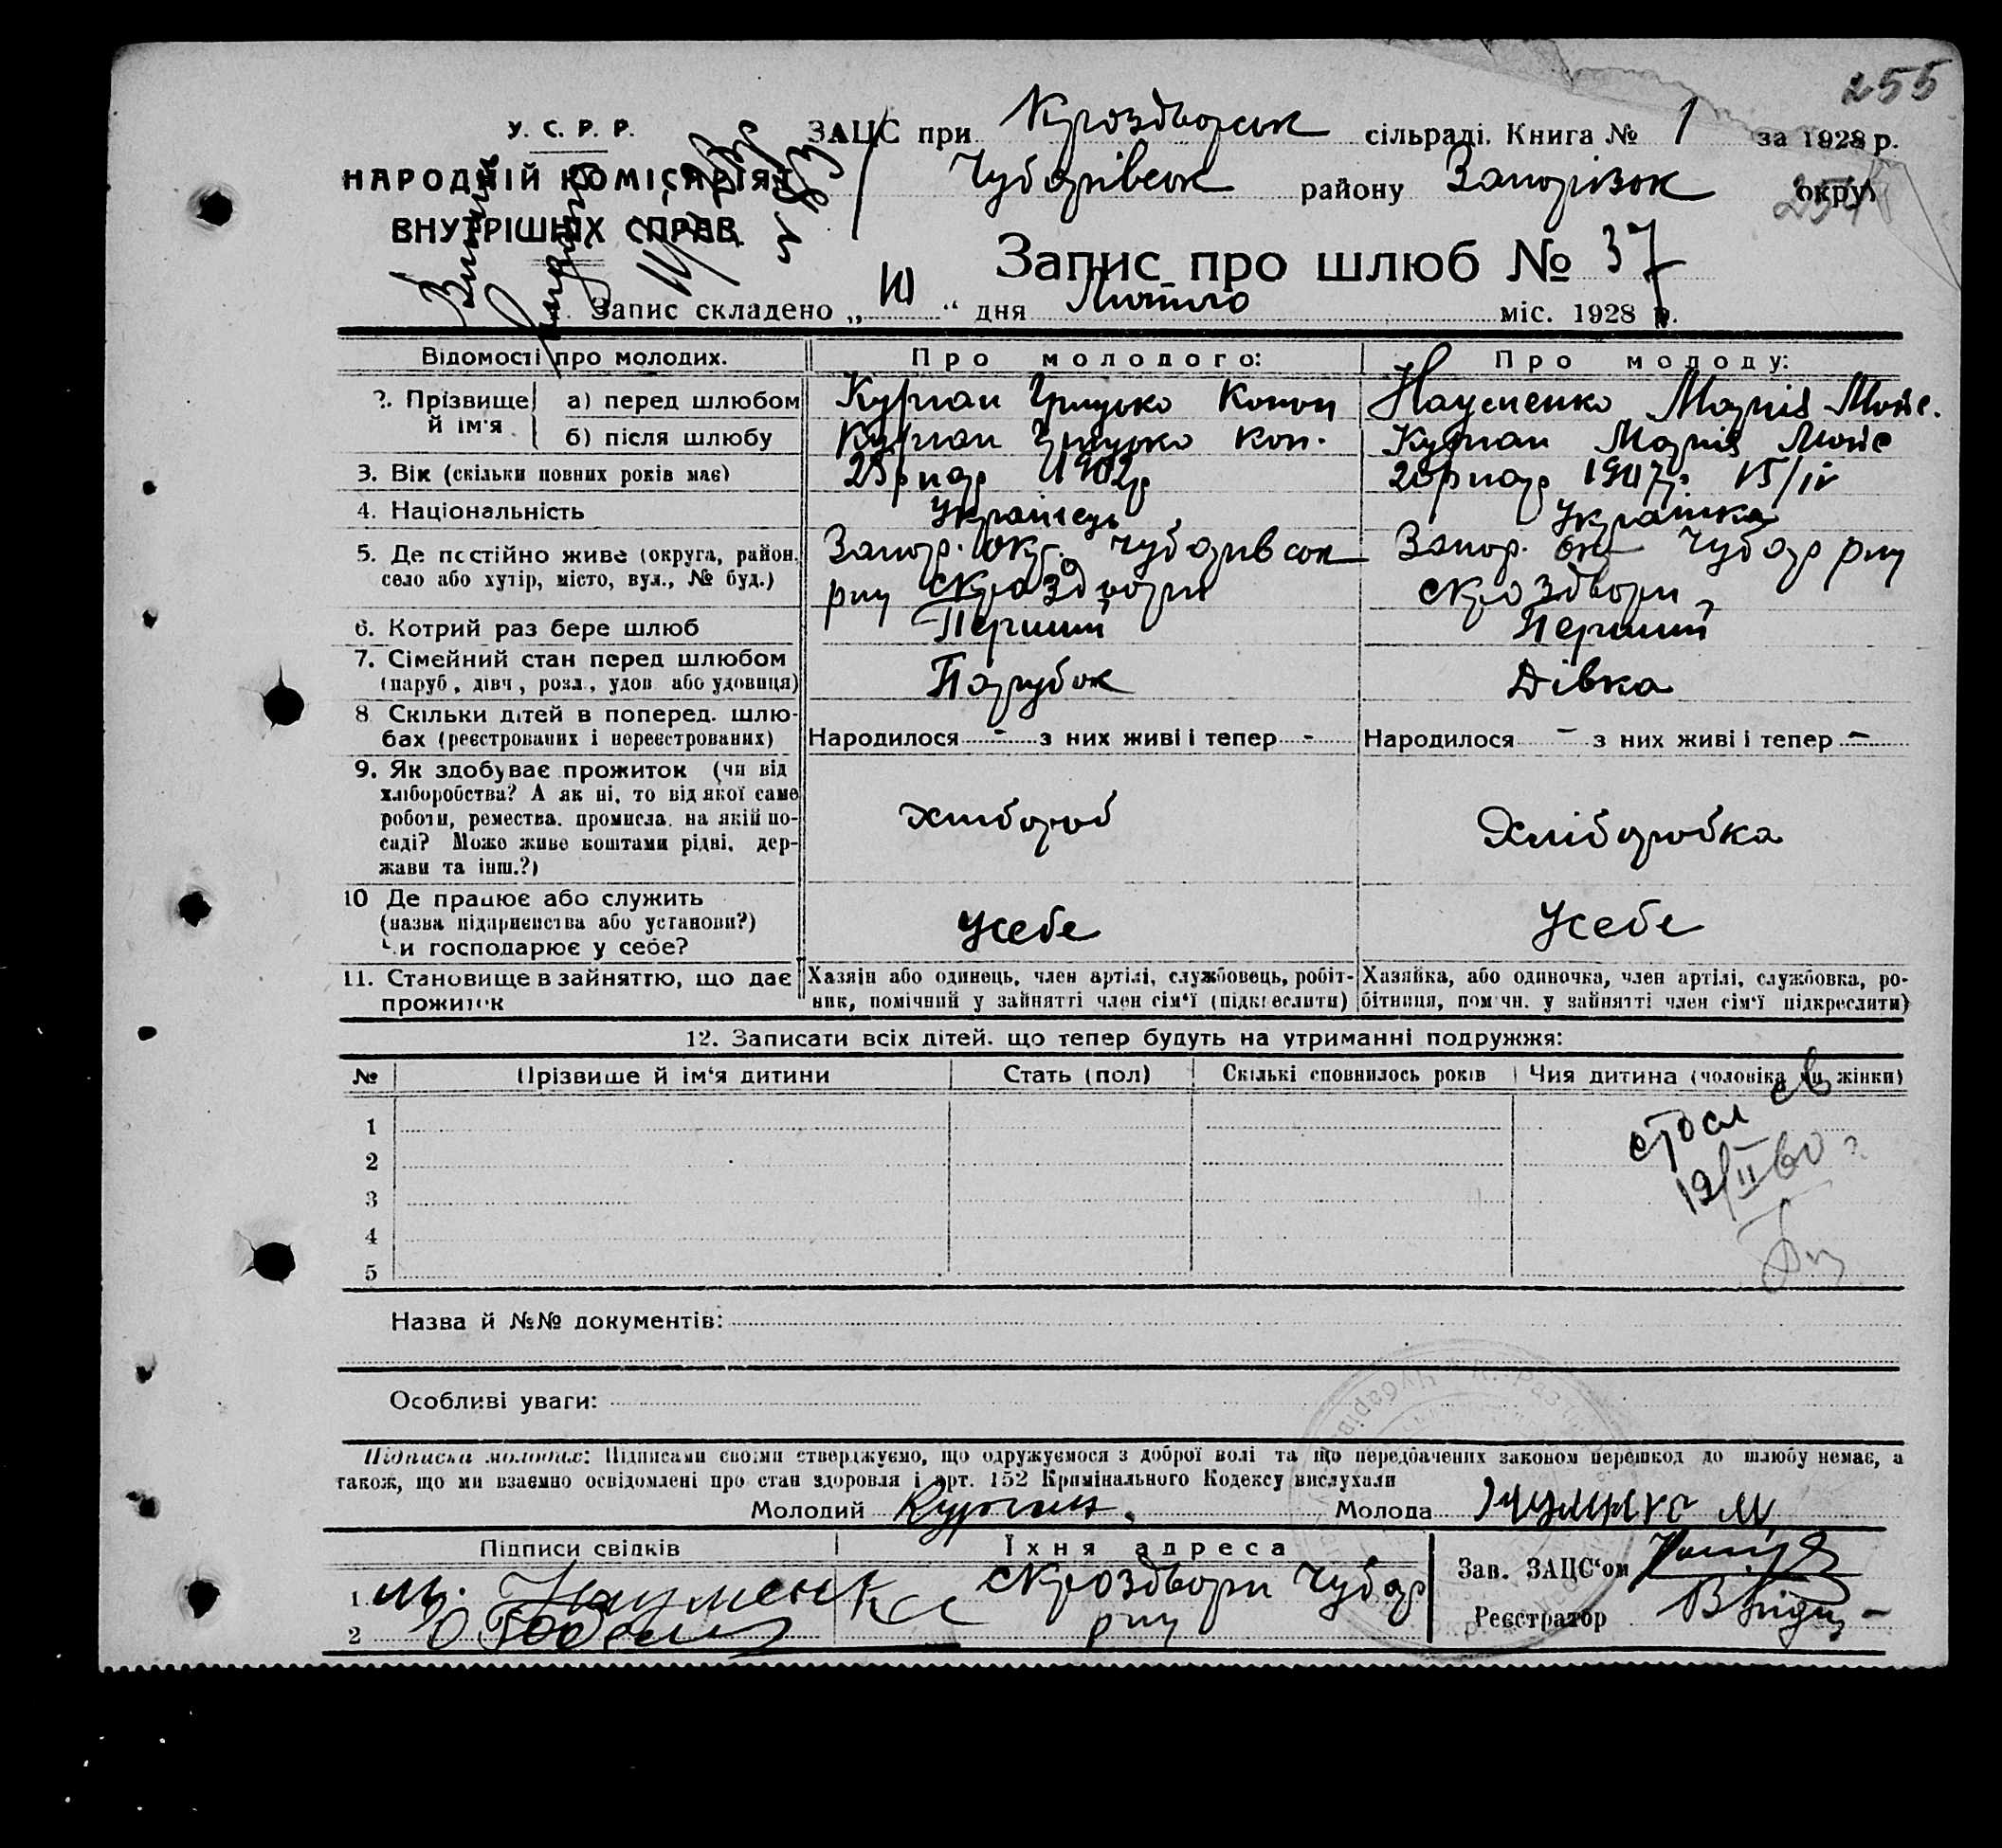 255
У. С. Р. Р.
НАРОДНІЙ КОМІСАРІЯТ
ВНУТРІШНІХ СПРАВ
ЗАЦС при Кроздворськ сільраді. Книга № 1 за 1928 р.
Чубарівськ району Запорізьк округ
Запис про шлюб № 37
Запис складено „ “ дня Лютого міс. 1928 р.
Відомості про молодих.
Про молодого:
Про молоду:
2. Прізвище й ім'я
а) перед шлюбом
Грицько Конон
Науменко Марія Мойс.
б) після шлюбу
Грицько Кон.
Марія Мойс
3. Вік (скільки повних років має)
25 р нар 1902 р
20 р нар 1907 р. 15/IV
4. Національність
Українець
Українка
5. Де постійно живе (округа, район, село або хутір, місто, вул., № буд.)
Запор. окр. Чубарівськ
рну с Кроздвори
Запор. окр Чубар рну
с Кроздвори
6. Котрий раз бере шлюб
Перший
Перший
7. Сімейний стан перед шлюбом
(паруб, дівч, розл, удов або удовиця)
Парубок
Дівка
8 Скільки дітей в поперед. шлю-
бах (реєстрованих і нереєстрованих)
Народилося - з них живі і тепер -
Народилося - з них живі і тепер -
9. Як здобуває прожиток (чи від
хліборобства? А як ні, то від якої саме
роботи, ремества. промисла. на якій по-
саді? Може живе коштами рідні, дер-
жави та інш.?)
хлібороб
Хліборобка
10 Де працює або служить
(назва підприємства або установи?)
Чи господарює у себе?
Усебе
Усебе
11. Становище в зайняттю, що дає
прожиток
Хазяін або одинець, член артілі, службовець, робіт-
ник, помічний у зайнятті член сім'ї (підкреслити)
Хазяйка, або одиночка, член артілі, службовка, ро-
бітниця, помічн. у зайнятті член сім'ї підкреслити)
12. Записати всіх дітей. що тепер будуть на утриманні подружжя:
№ Прізвише й ім'я дитини Стать (пол) Скількі сповнилось років Чия дитина (чоловіка чи жінки)
1
2
3
4
5
12/II 60
Назва й №№ документів:
Особливі уваги:
Підписка молодих: Підписами своїми стверджуємо, що одружуємося з доброї волі та що передбачених законом перешкод до шлюбу немає, а
також, що ми взаємно освідомлені про стан здоровля і арт. 152 Крамінального Кодексу вислухали
Молодий Молода
Підписи свідків
Їхня адреса
1 М. Науменко
с Кроздвори Чубар
рну
2
Зав. ЗАЦС'ом
Реєстратор